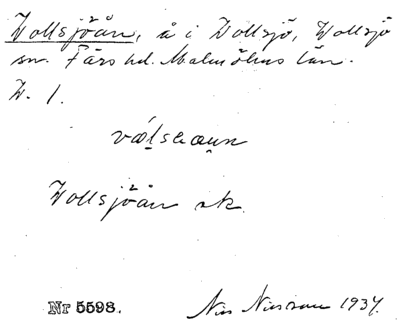 Vollsjöån, å i Vollsjö, Vollsjö
sn. Färs hd. Malmöhus län.
V. 1.
Vollsjöån sk.
Nr 5598. Nils Nilsson 1937.